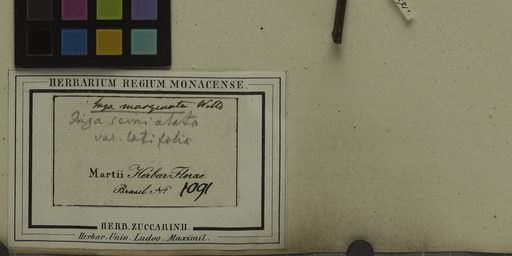 HERBARIUM REGIUM MONACENSE.
Inga marginata Willd
Inga semialata
var. latifolia
Martii Herbar. Florae
Brasil. No. 1091
HERB. ZUCCARINII.
Herbar. Univ. Ludov. Maximil.